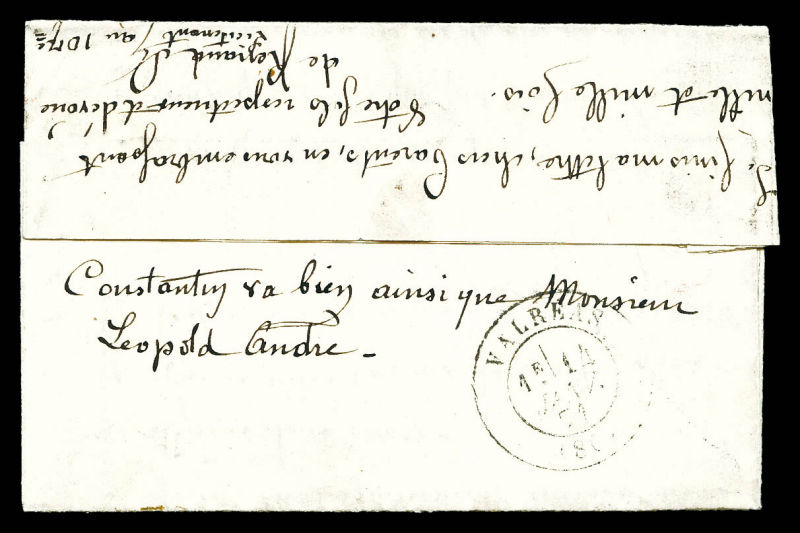 Je finis ma lettre, chers Parents, en vous embrassant
mille et mille fois.
Votre fils respectueux et dévoué
de Regiand
Lieutenant au 107e
Constantin va bien ainsi que Monsieur
Leopold André -
VALREAS
1E/ 14
JANV.
71